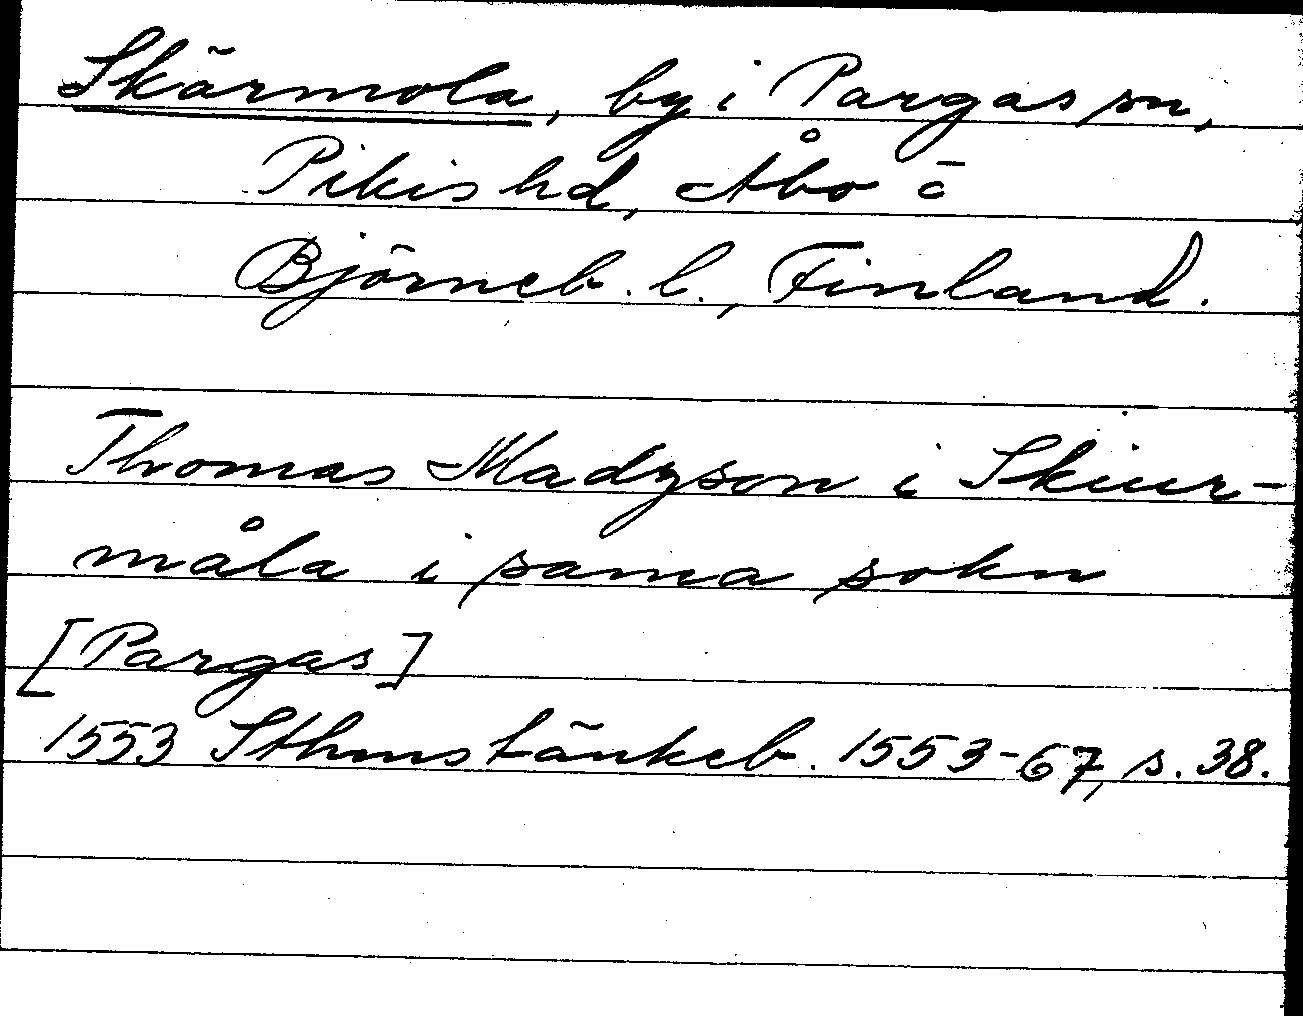 Skärmola, by i Pargas sn,
Pikis hd, Åbo o
Björneb. l., Finland.
Thomas Madzson i Skiur-
måla i sama sokn
[Pargas]
1553 Sthms tänkeb. 1553-67, s. 38.